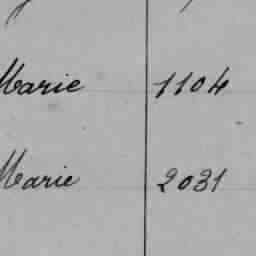 Marie 1104
Marie 2031